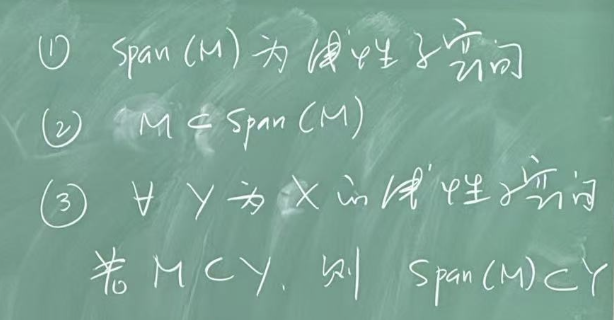 (1) Span(M)为线性子空间
(2) M⊂Span(M)
(3) ∀Y为X的线性子空间
若M⊂Y,则 Span(M)⊂Y